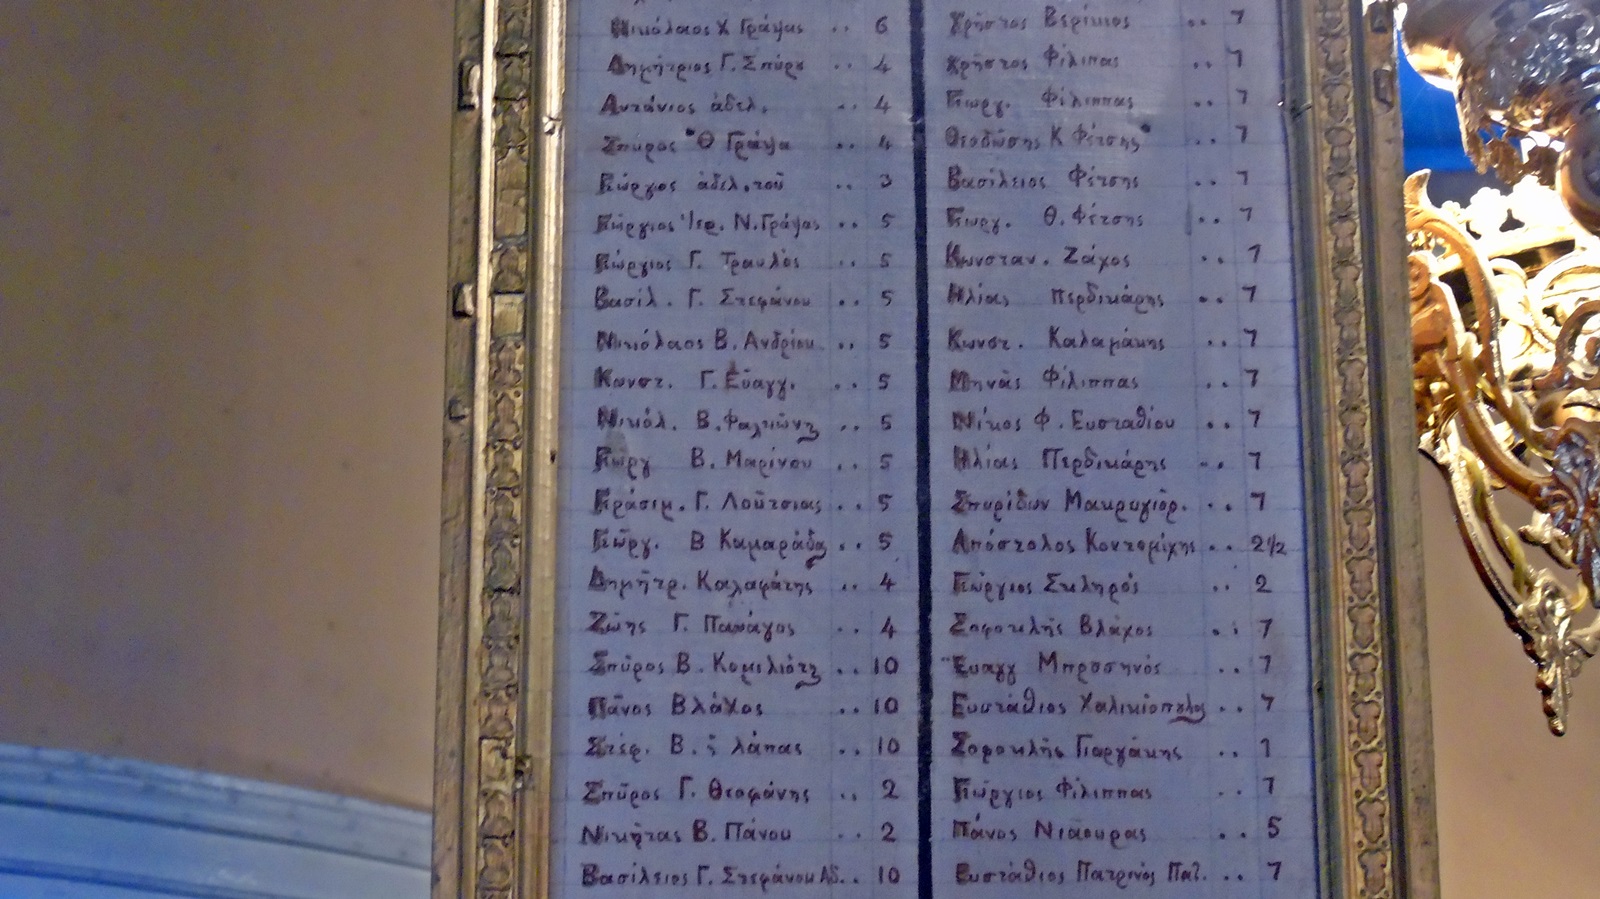 Νικόλαος Χ Γράψας .. 6
Δημήτριος Γ. Σπύρου .. 4
Αντώνιος ἀδελ. .. 4
Σπυρος Θ Γράψα .. 4
Γεώργιος ἀδελ. τοῦ .. 3
Γεώργιος Ἱερ. Ν. Γράψας .. 5
Γεώργιος Γ. Τραυλὸς .. 5
Βασίλ. Γ. Στεφάνου .. 5
Νικόλαος Β. Ανδρίου .. 5
Κωνστ. Γ. Εὐαγγ. .. 5
Νικόλ. Β. .. 5
Γεωργ Β. Μαρίνου .. 5
Γεράσιμ. Γ. Λούτσιας .. 5
Γεὼργ. Β Καμαράδα .. 5
Δημῆτρ. Καλαφάτης .. 4
Ζώης Γ. Πανάγος .. 4
Σπῦρος Β. Κομιλιότη .. 10
Πᾶνος Βλάχος .. 10
Στέφ. Β. .. 10
Σπῦρος Γ. Θεοφάνης .. 2
Νικήτας Β. Πάνου .. 2
Βασίλειος Γ. Στεφάνου Αδ. .. 10
Χρῆστος Βερίκιος .. 7
Χρῆστος Φίλιππας .. 7
Γεωργ. Φίλιππας .. 7
Θεοδώσης Κ Φέτσης .. 7
Βασίλειος Φέτσης .. 7
Γεωργ. Θ. Φέτσης .. 7
Κωνσταν. Ζάχος .. 7
Ηλίας Περδικάρης .. 7
Κωνστ. Καλαμάκης .. 7
Μηνᾶς Φίλιππας .. 7
Νίκος Φ. Ευσταθίου .. 7
Ηλίας Περδικάρης .. 7
Σπυρίδων Μακρυγιόρ. .. 7
Απόστολος Κοντομίχης .. 2½
Γεώργιος Σκληρός .. 2
Σοφοκλῆς Βλάχος .. 7
Ευαγγ Μπροσηνός .. 7
Ευστάθιος Χαλικιόπυλος .. 7
Σοφοκλῆς Γιαργάκης .. 7
Γεώργιος Φίλιππας .. 7
Πάνος Νιάουρας .. 5
Ευστάθιος Πατρινός Πατ. .. 7